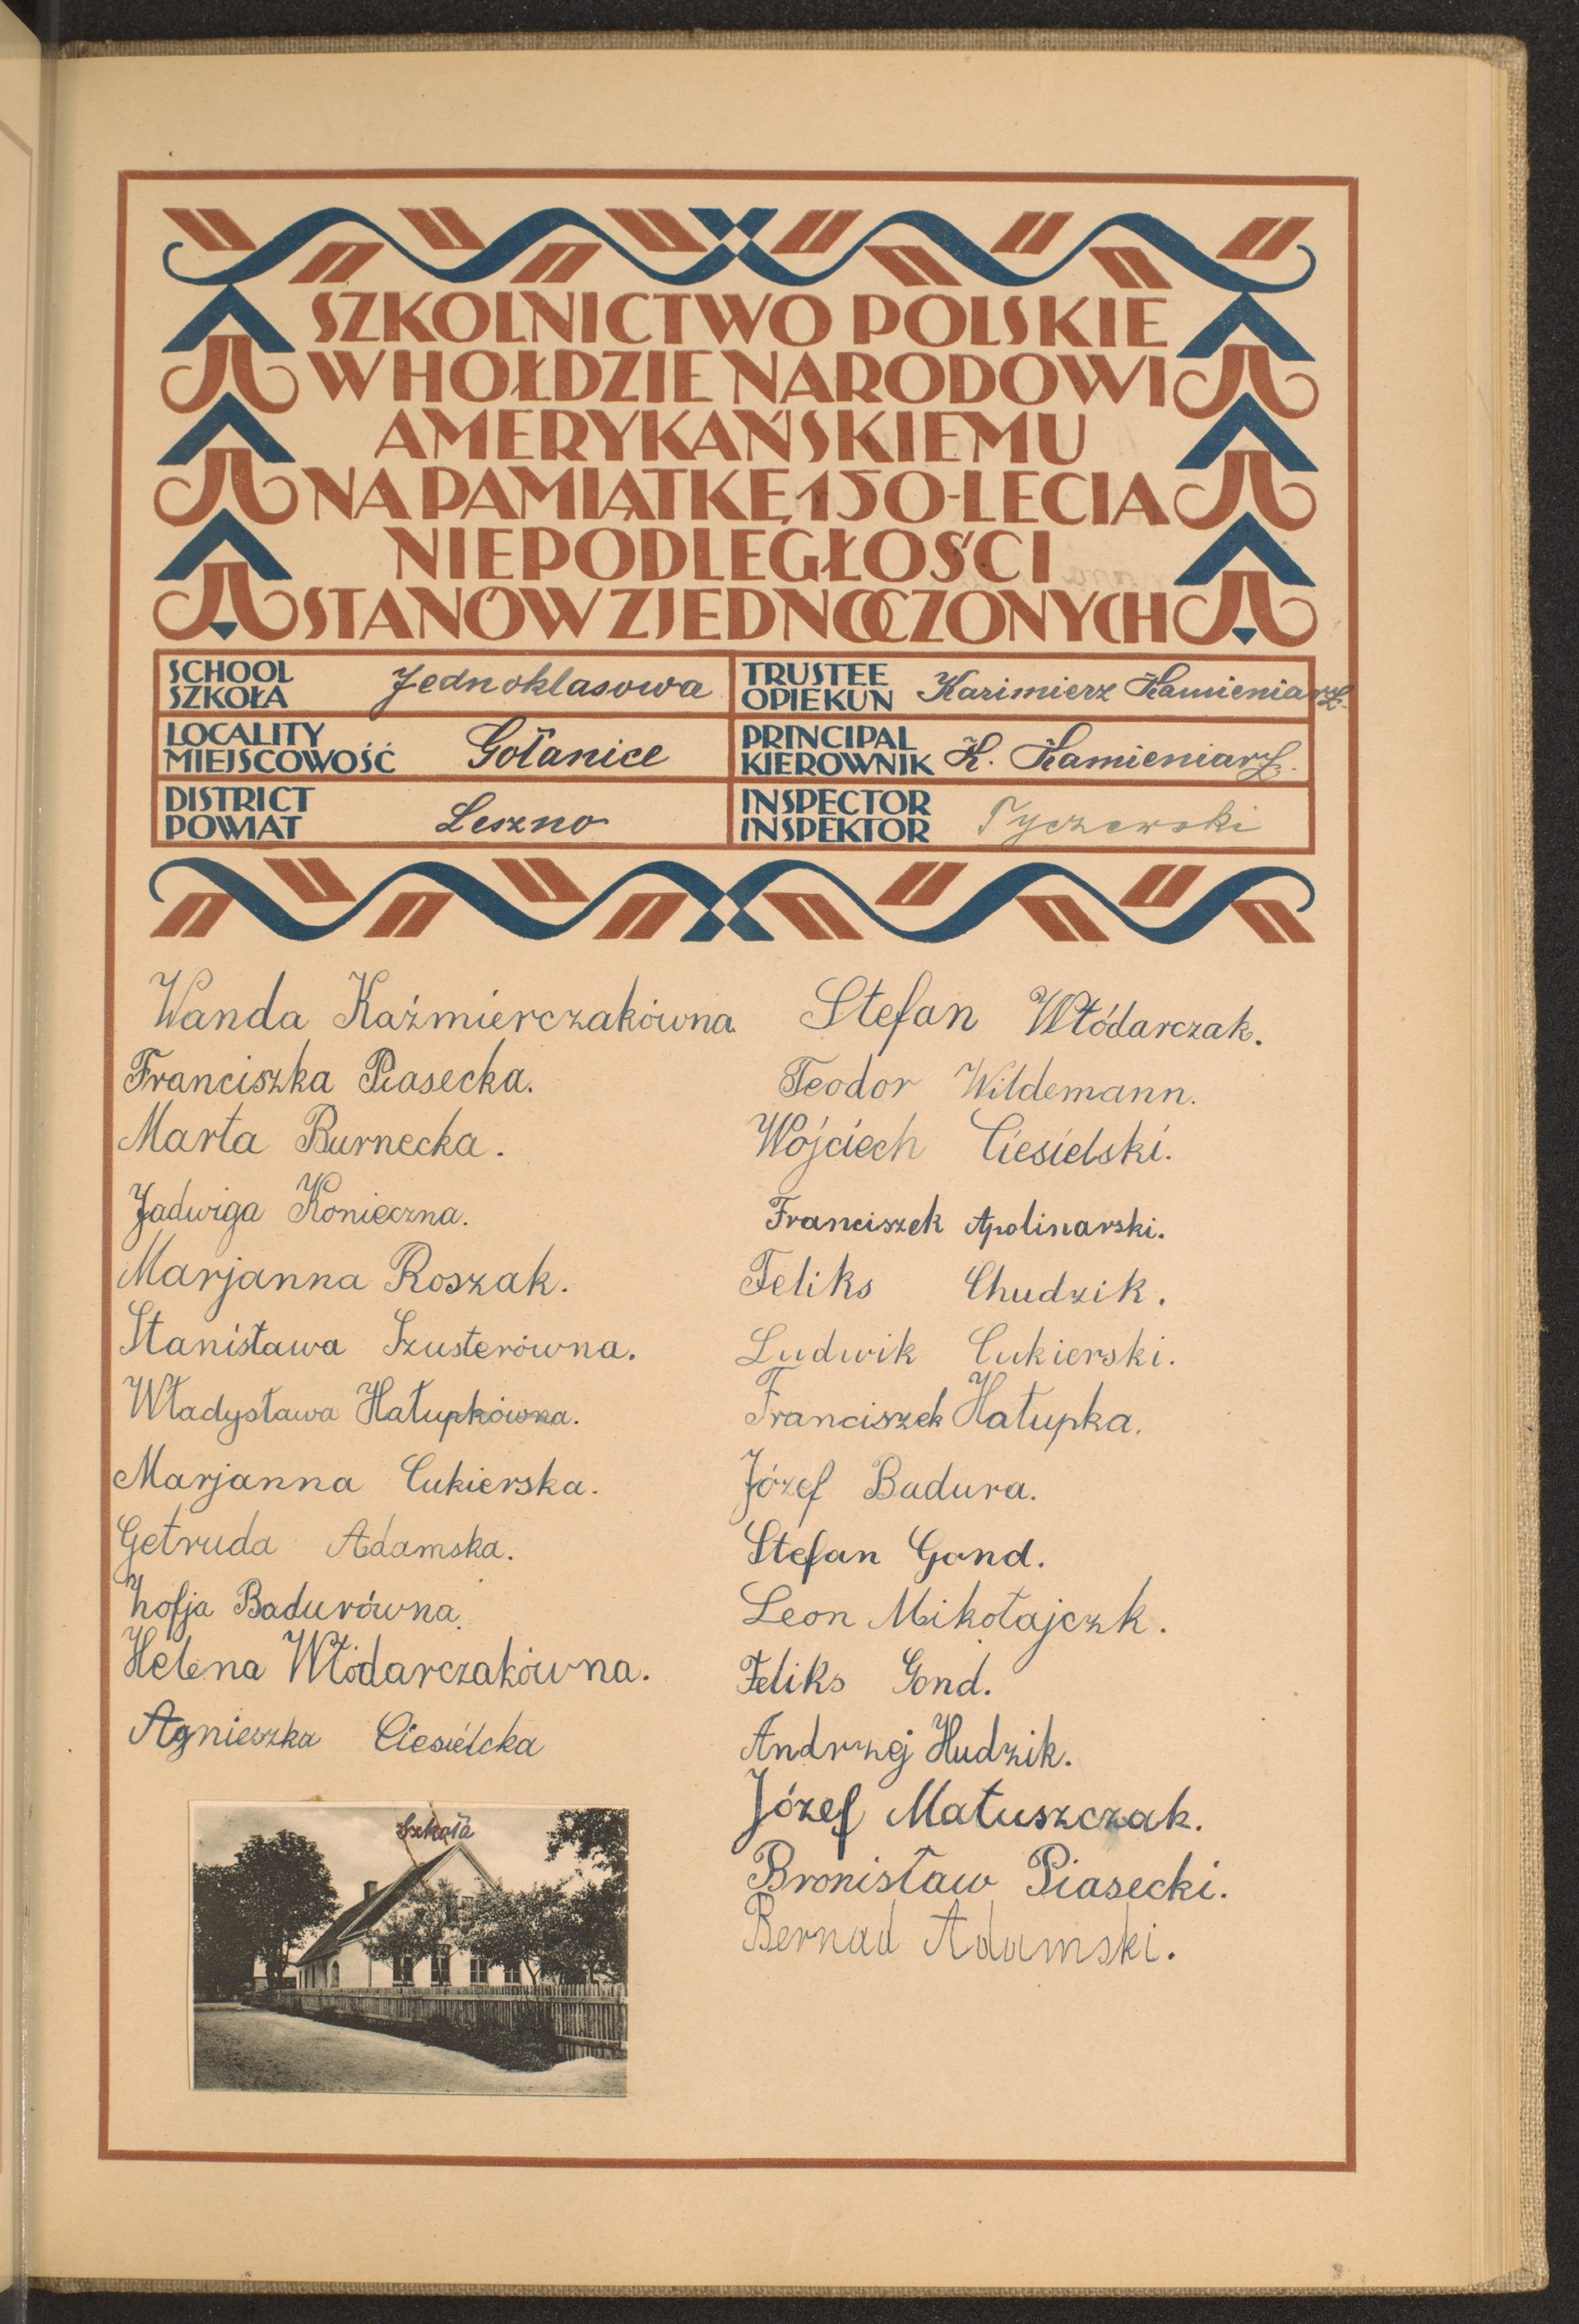 SZKOLNICTWO POLSKIE
W HOŁDZIE NARODOWI
AMERYKAŃSKIEMU
NA PAMIĄTKĘ 150-LECIA
NIEPODLEGŁOŚCI
STANÓW ZJEDNOCZONYCH
SCHOOL
SZKOŁA
Jednoklasowa
TRUSTEE
OPIEKUN
Kazimierz Kamieniarz.
LOCALITY
MIEJSCOWOŚĆ
Gołanice
PRINCIPAL
KIEROWNIK
K. Kamieniarz.
DISTRICT
POWIAT
Leszno
INSPECTOR
INSPEKTOR
Tyczewski
Wanda Kaźmierczakówna
Franciszka Piasecka.
Marta Burnecka.
Jadwiga Konieczna.
Marjanna Roszak.
Stanisława Szusterówna.
Władysława Hałupkówna.
Marjanna Cukierska.
Getruda Adamska.
Zofja Badurówna.
Helena Włódarczakówna.
Agnieszka Ciesielcka
Stefan Włódarczak.
Teodor Wildemann.
Wojciech Ciesielski.
Franciszek Apolinarski.
Feliks Chudzik.
Ludwik Cukierski.
Franciszek Hałupka.
Józef Badura.
Stefan Gond.
Leon Mikołajczk.
Feliks Gond.
Andrzej Hudzik.
Józef Matuszczak.
Bronisław Piasecki.
Bernad Adamski.
Szkoła